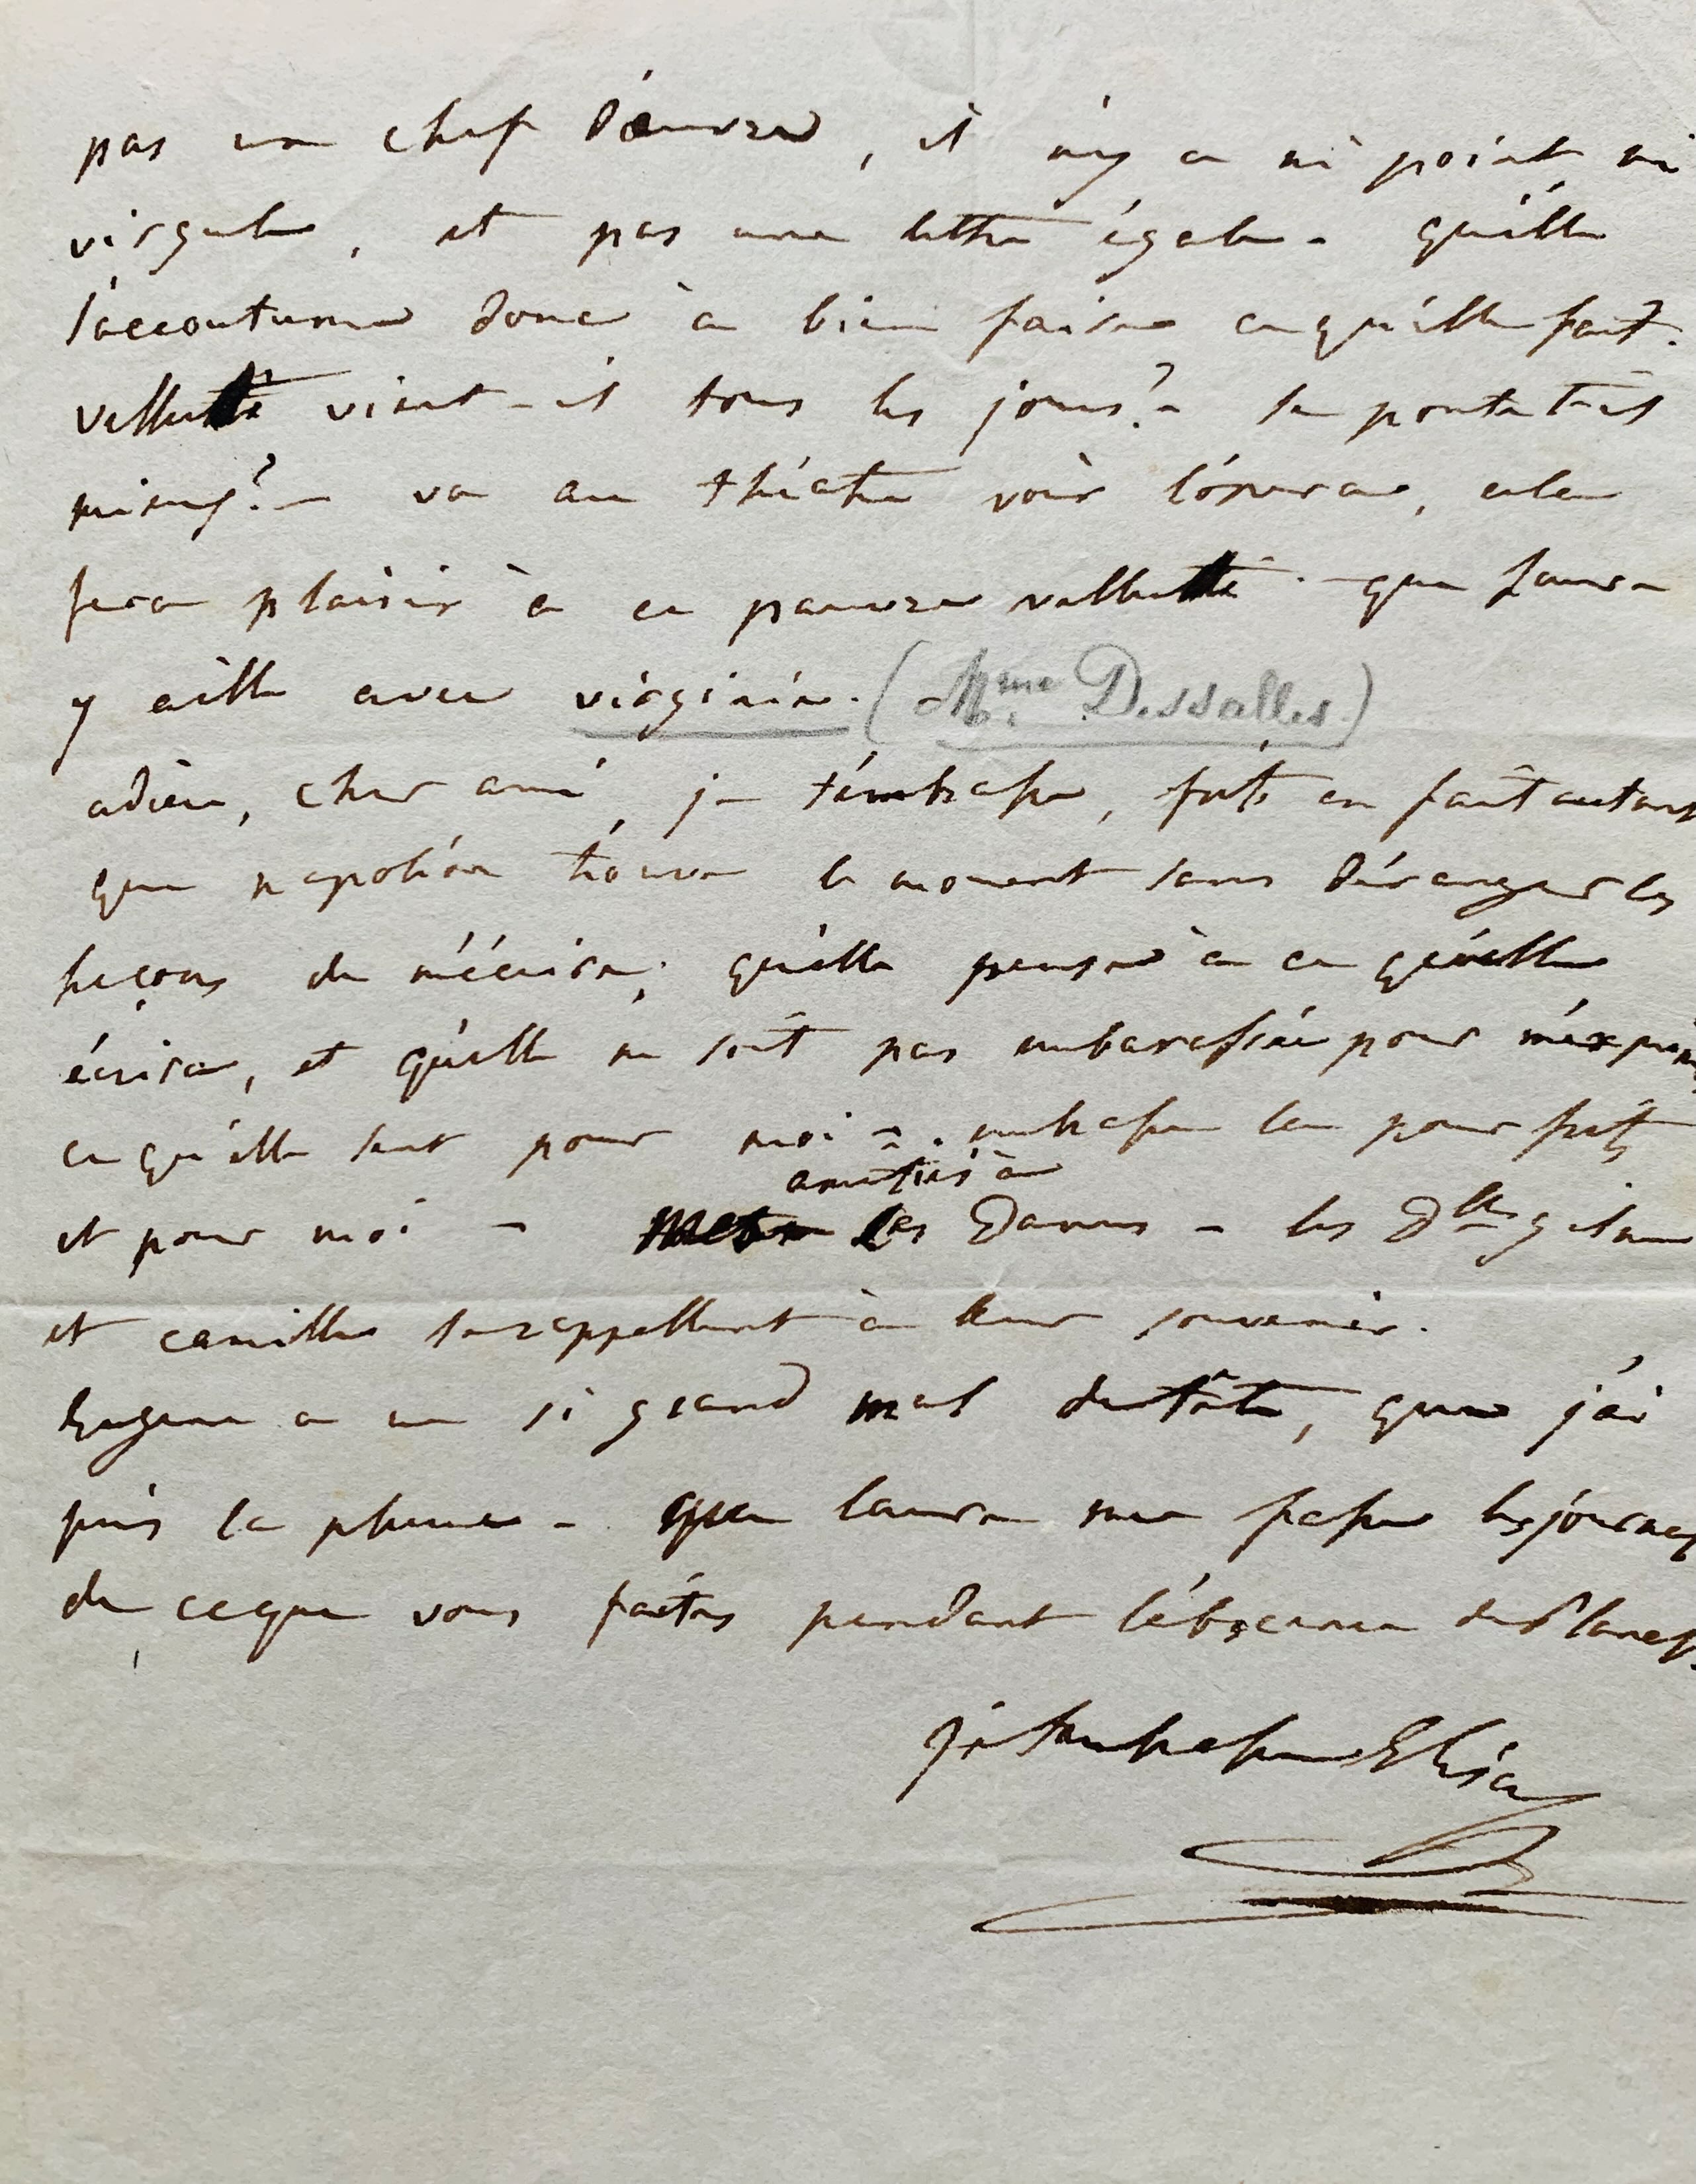 pas un chef d'œuvre, il n'y a ni point ni
virgule, et pas une lettre égale - qu'elle
s'accoutume donc à bien faire ce qu'elle fait.
vient-il tous les jours? - se porte t-il
mieux? - va au théâtre voir l'opera, cela
fera plaisir à ce pauvre - que Laure
y aille avec virginie. (Mme Dessalles)
adieu, cher ami, je t'embrasse, fritz en fait autant
que napoléon trouve le moment sans déranger les
leçons de m'écrire; qu'elle pense à ce qu'elle
écrira, et qu'elle ne soit pas embarassée pour m'exprimer
ce qu'elle sent pour moi - embrasse la pour fritz
amitiés à
et pour moi - les Dames - les Dlles
et camille se rappellent à leur souvenir.
Eugene a un si grand mal de tête, que j'ai
pris la plume - que laure me fasse les journaux
de ce que vous faites pendant l'absence
je t'embrasse Elisa